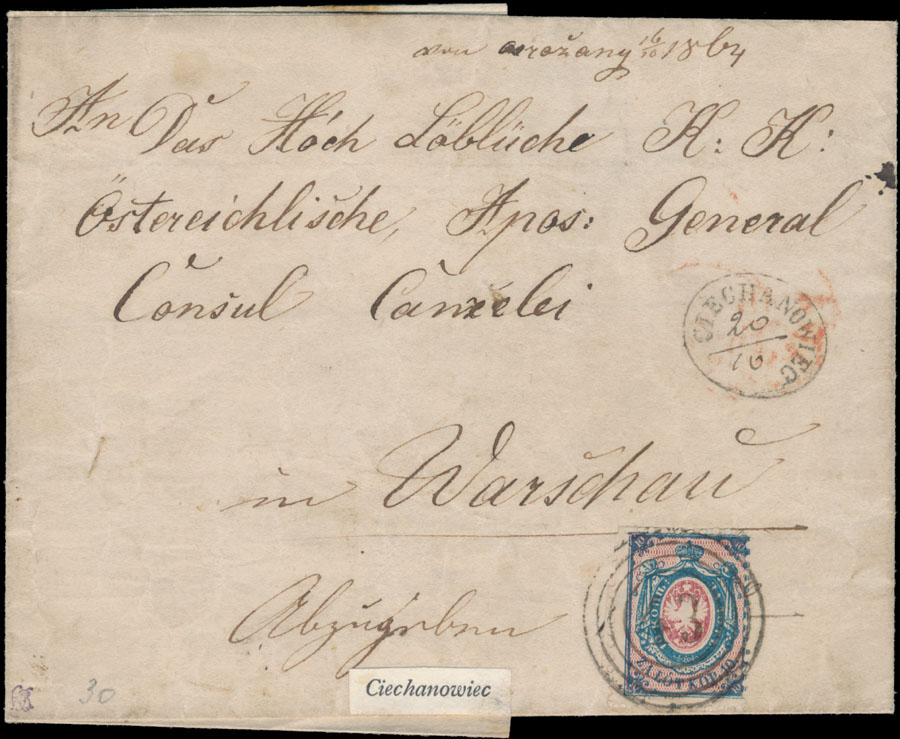 von 16/10 1864
An Das Hoch Löbliche K: K:
Östereichlische, Apos: General
Consul Canzelei
CIECHANOWIEC
20/10
in Warschau
Abzugeben
ZA ŁOT KOP. 10
Ciechanowiec
30